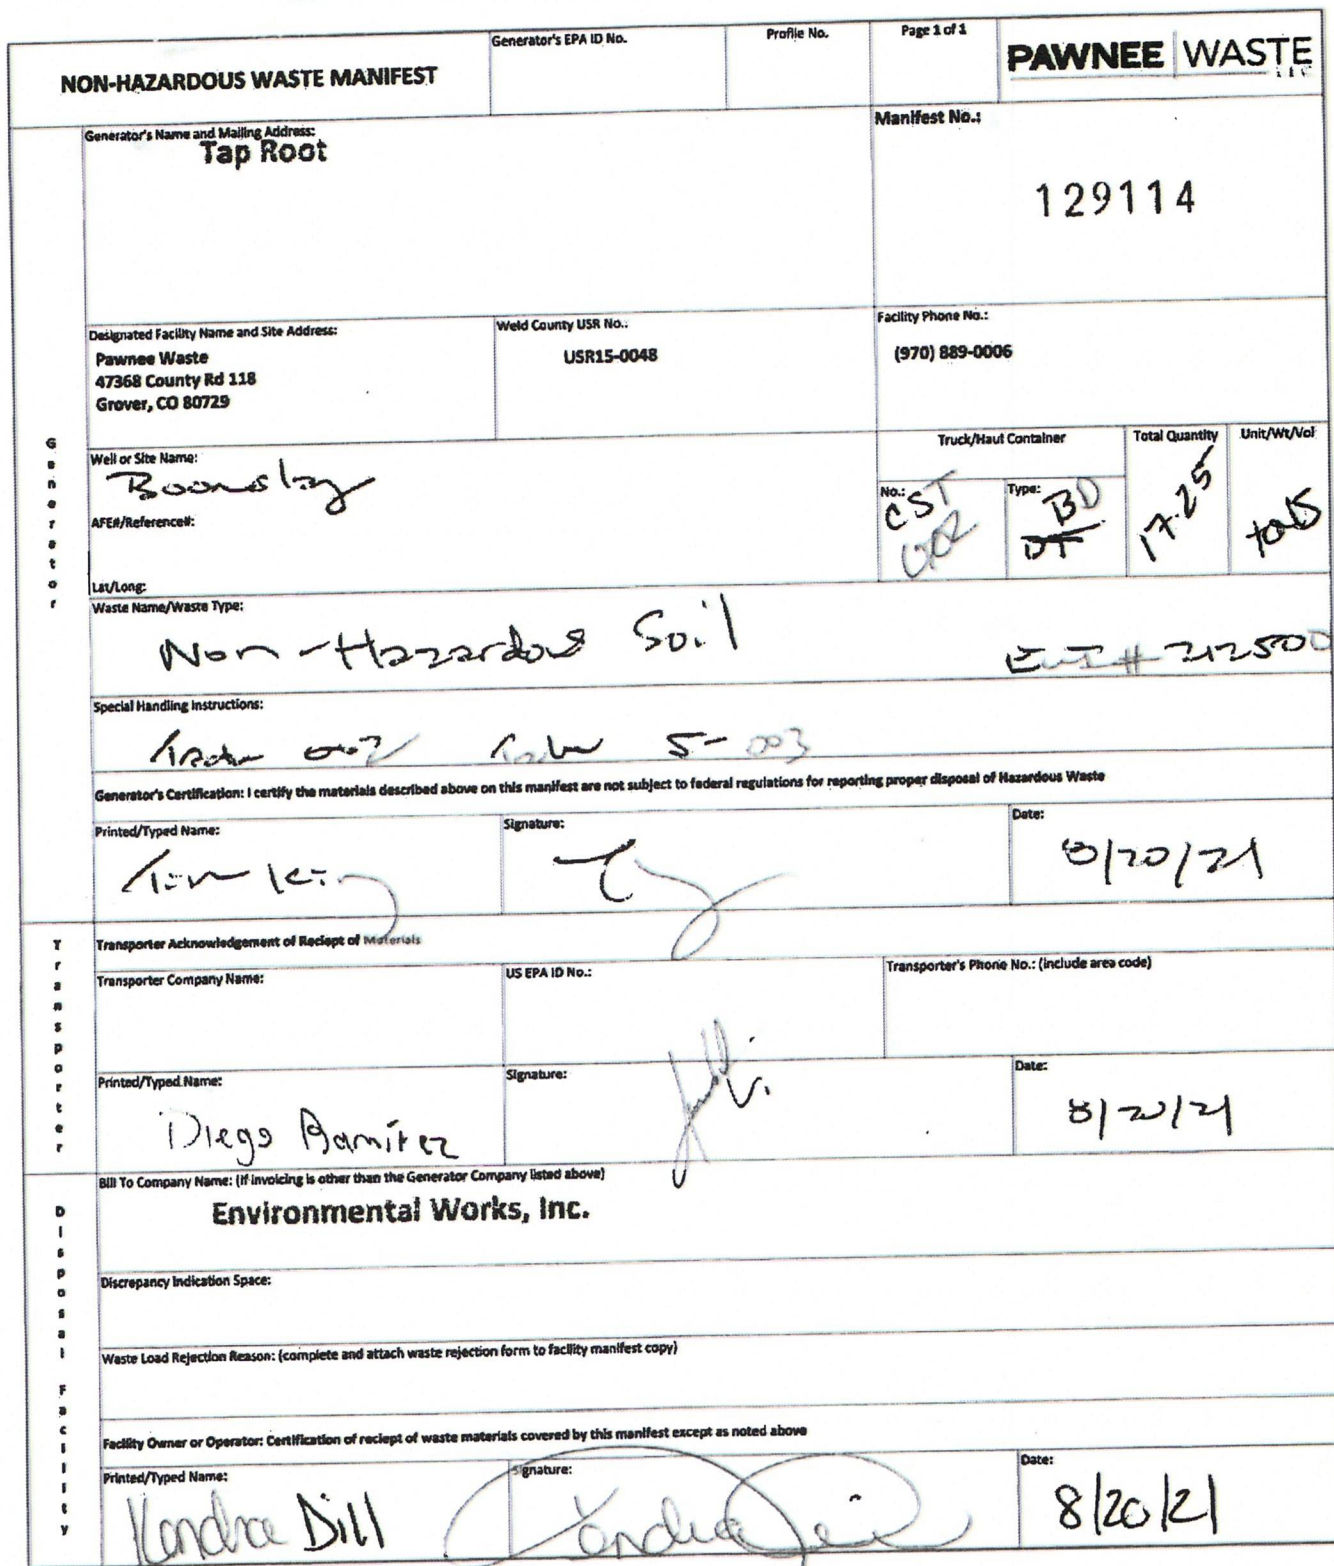 NON-HAZARDOUS WASTE MANIFEST
Generator's EPA ID No.
Profile No.
Page 1 of 1
PAWNEE WASTE
LLC
Generator's Name and Mailing Address:
Tap Root
Manifest No.:
129114
Designated Facility Name and Site Address:
Pawnee Waste
47368 County Rd 118
Grover, CO 80729
Weld County USR No.:
USR15-0048
Facility Phone No.:
(970) 889-0006
Generator
Well or Site Name:
AFE#/Reference#:
Lat/Long:
Truck/Haul Container
No.:
CST
002
Type:
BD
DT
Total Quantity
17.25
Unit/Wt/Vol
tons
Waste Name/Waste Type:
Non-Hazardous Soil
EWI # 212500
Special Handling Instructions:
002 5-003
Generator's Certification: I certify the materials described above on this manifest are not subject to federal regulations for reporting proper disposal of Hazardous Waste
Printed/Typed Name:
Tim King
Signature:
Date:
8/20/21
Transporter
Transporter Acknowledgement of Reciept of Materials
Transporter Company Name:
US EPA ID No.:
Transporter's Phone No.: (include area code)
Printed/Typed Name:
Diego Ramirez
Signature:
Date:
8/20/21
Disposal Facility
Bill To Company Name: (If invoicing is other than the Generator Company listed above)
Environmental Works, Inc.
Discrepancy Indication Space:
Waste Load Rejection Reason: (complete and attach waste rejection form to facility manifest copy)
Facility Owner or Operator: Certification of reciept of waste materials covered by this manifest except as noted above
Printed/Typed Name:
Kendra Dill
Signature:
Date:
8/20/21